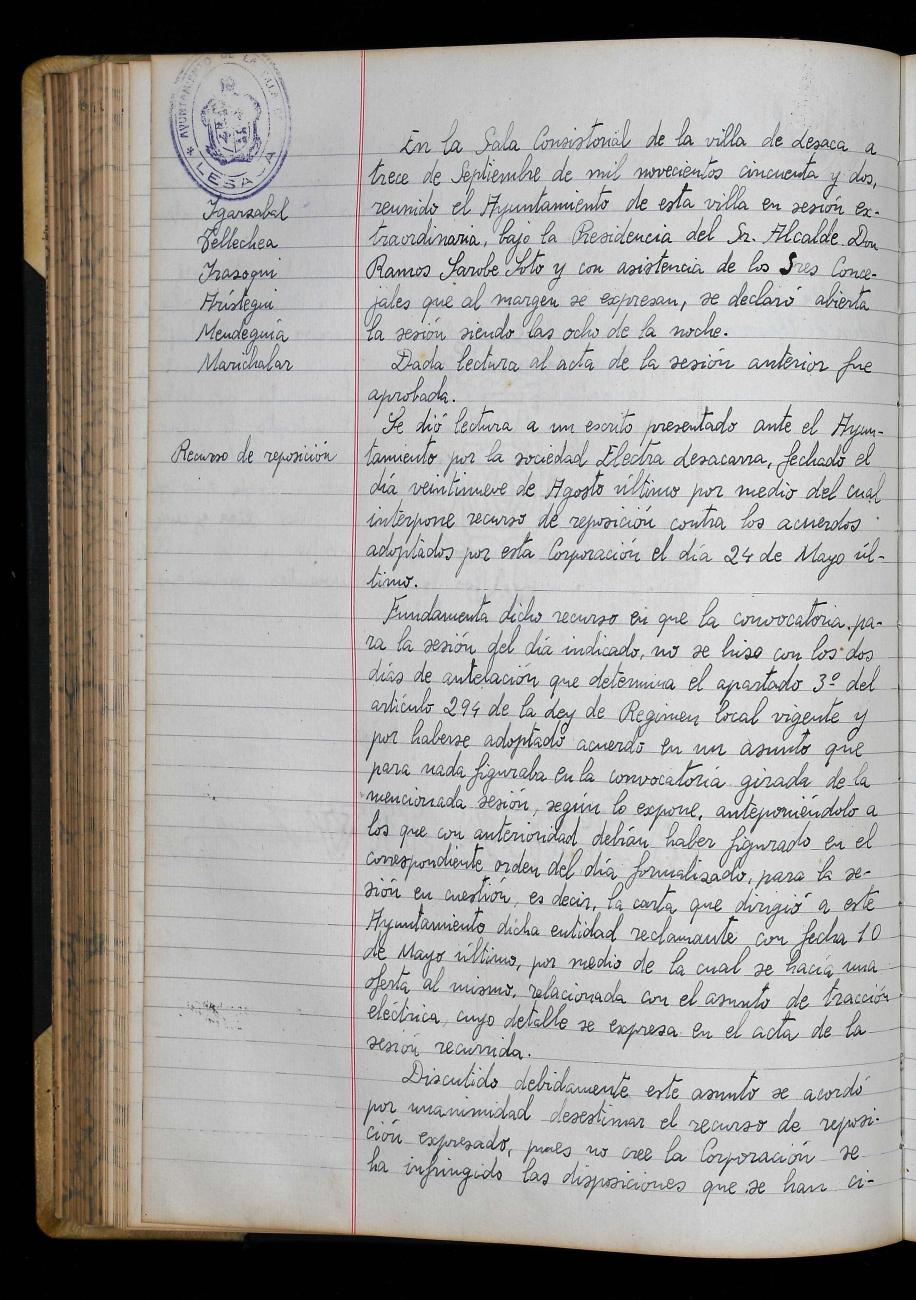 AYUNTAMIENTO DE LA VILLA DE
* LESACA
Igarzabal
Tellechea
Irazoqui
Arístegui
Mendeguía
Marichalar
En la Sala Consistorial de la villa de Lesaca a
trece de Septiembre de mil novecientos cincuenta y dos,
reunido el Ayuntamiento de esta villa en sesión ex-
traordinaria, bajo la Presidencia del Sr. Alcalde Don
Ramos Sarobe Soto y con asistencia de los Sres Conce-
jales que al margen se expresan, se declaró abierta
la sesión siendo las ocho de la noche.
Dada lectura al acta de la sesión anterior fue
aprobada.
Recurso de reposición
Se dió lectura a un escrito presentado ante el Ayun-
tamiento por la sociedad Electra Lesacarra, fechado el
día veintinueve de Agosto último por medio del cual
interpone recurso de reposición contra los acuerdos
adoptados por esta Corporación el día 24 de Mayo úl-
timo.
Fundamenta dicho recurso en que la convocatoria pa-
ra la sesión del día indicado, no se hiso con los dos
días de antelación que determina el apartado 3º del
artículo 294 de la Ley de Regimen local vigente y
por haberse adoptado acuerdo en un asunto que
para nada figuraba en la convocatoria girada de la
mencionada sesión, según lo expone, anteponiéndolo a
los que con anterioridad debían haber figurado en el
correspondiente orden del día formalisado, para la se-
sión en cuestión, es decir, la carta que dirigió a este
Ayuntamiento dicha entidad reclamante con fecha 10
de Mayo último, por medio de la cual se hacía una
oferta al mismo, relacionada con el asunto de tracción
eléctrica, cuyo detalle se expresa en el acta de la
sesión recurrida.
Discutido debidamente este asunto se acordó
por unanimidad desestimar el recurso de reposi-
ción expresado, pues no cree la Corporación se
ha infringido las disposiciones que se han ci-